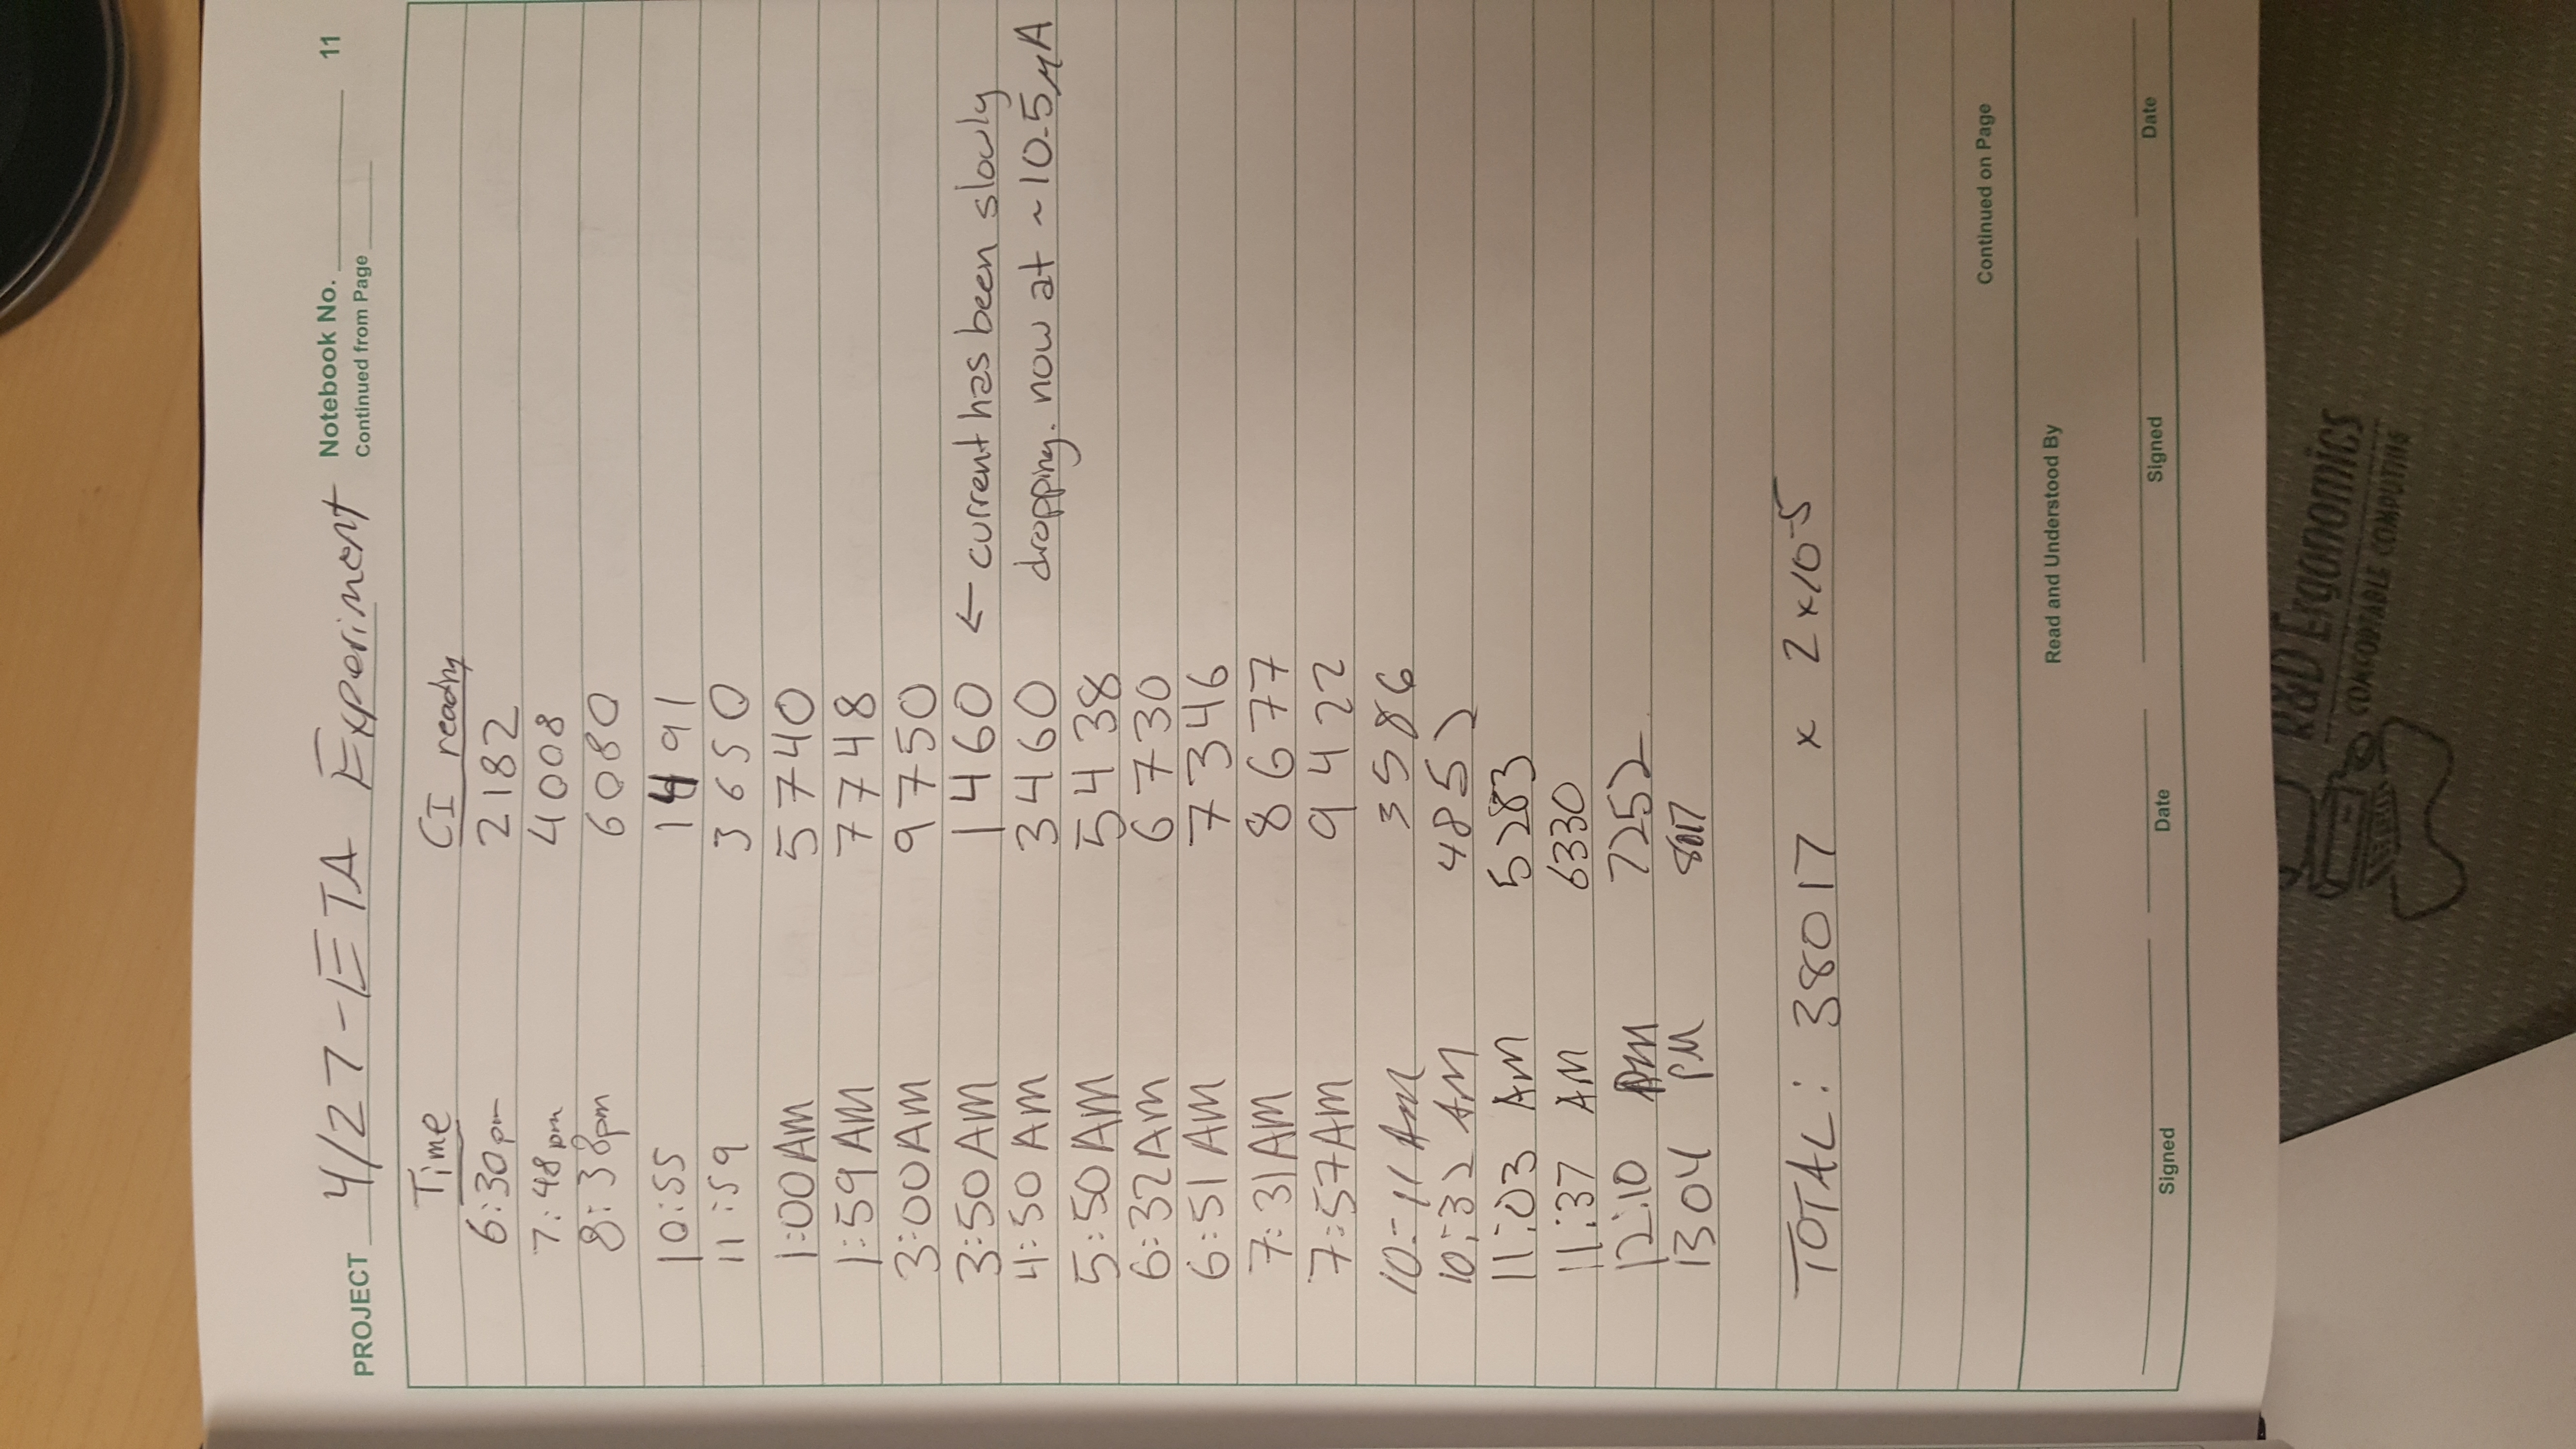 PROJECT 4/27-ETA Experiment Notebook No. 11
Continued from Page
Time CI readng
6:30pm 2182
7:48pm 4008
8:38pm 6080
10:55 1491
11:59 3650
1:00AM 5740
1:59AM 7748
3:00AM 9750
3:50AM 1460 ← current has been slowly
4:50AM 3460 dropping. now at ~10.5μA
5:50AM 5438
6:32AM 6730
6:51AM 7346
7:31AM 8677
7:57AM 9422
10:11 AM 3586
10:32 AM 4852
11:03 AM 5283
11:37 AM 6330
12:10 PM 7252
1304 PM 8017
TOTAL: 38017 x 2x10-5
Continued on Page
Read and Understood By
Signed Date Signed Date
R&D Ergonomics
COMFORTABLE COMPUTING